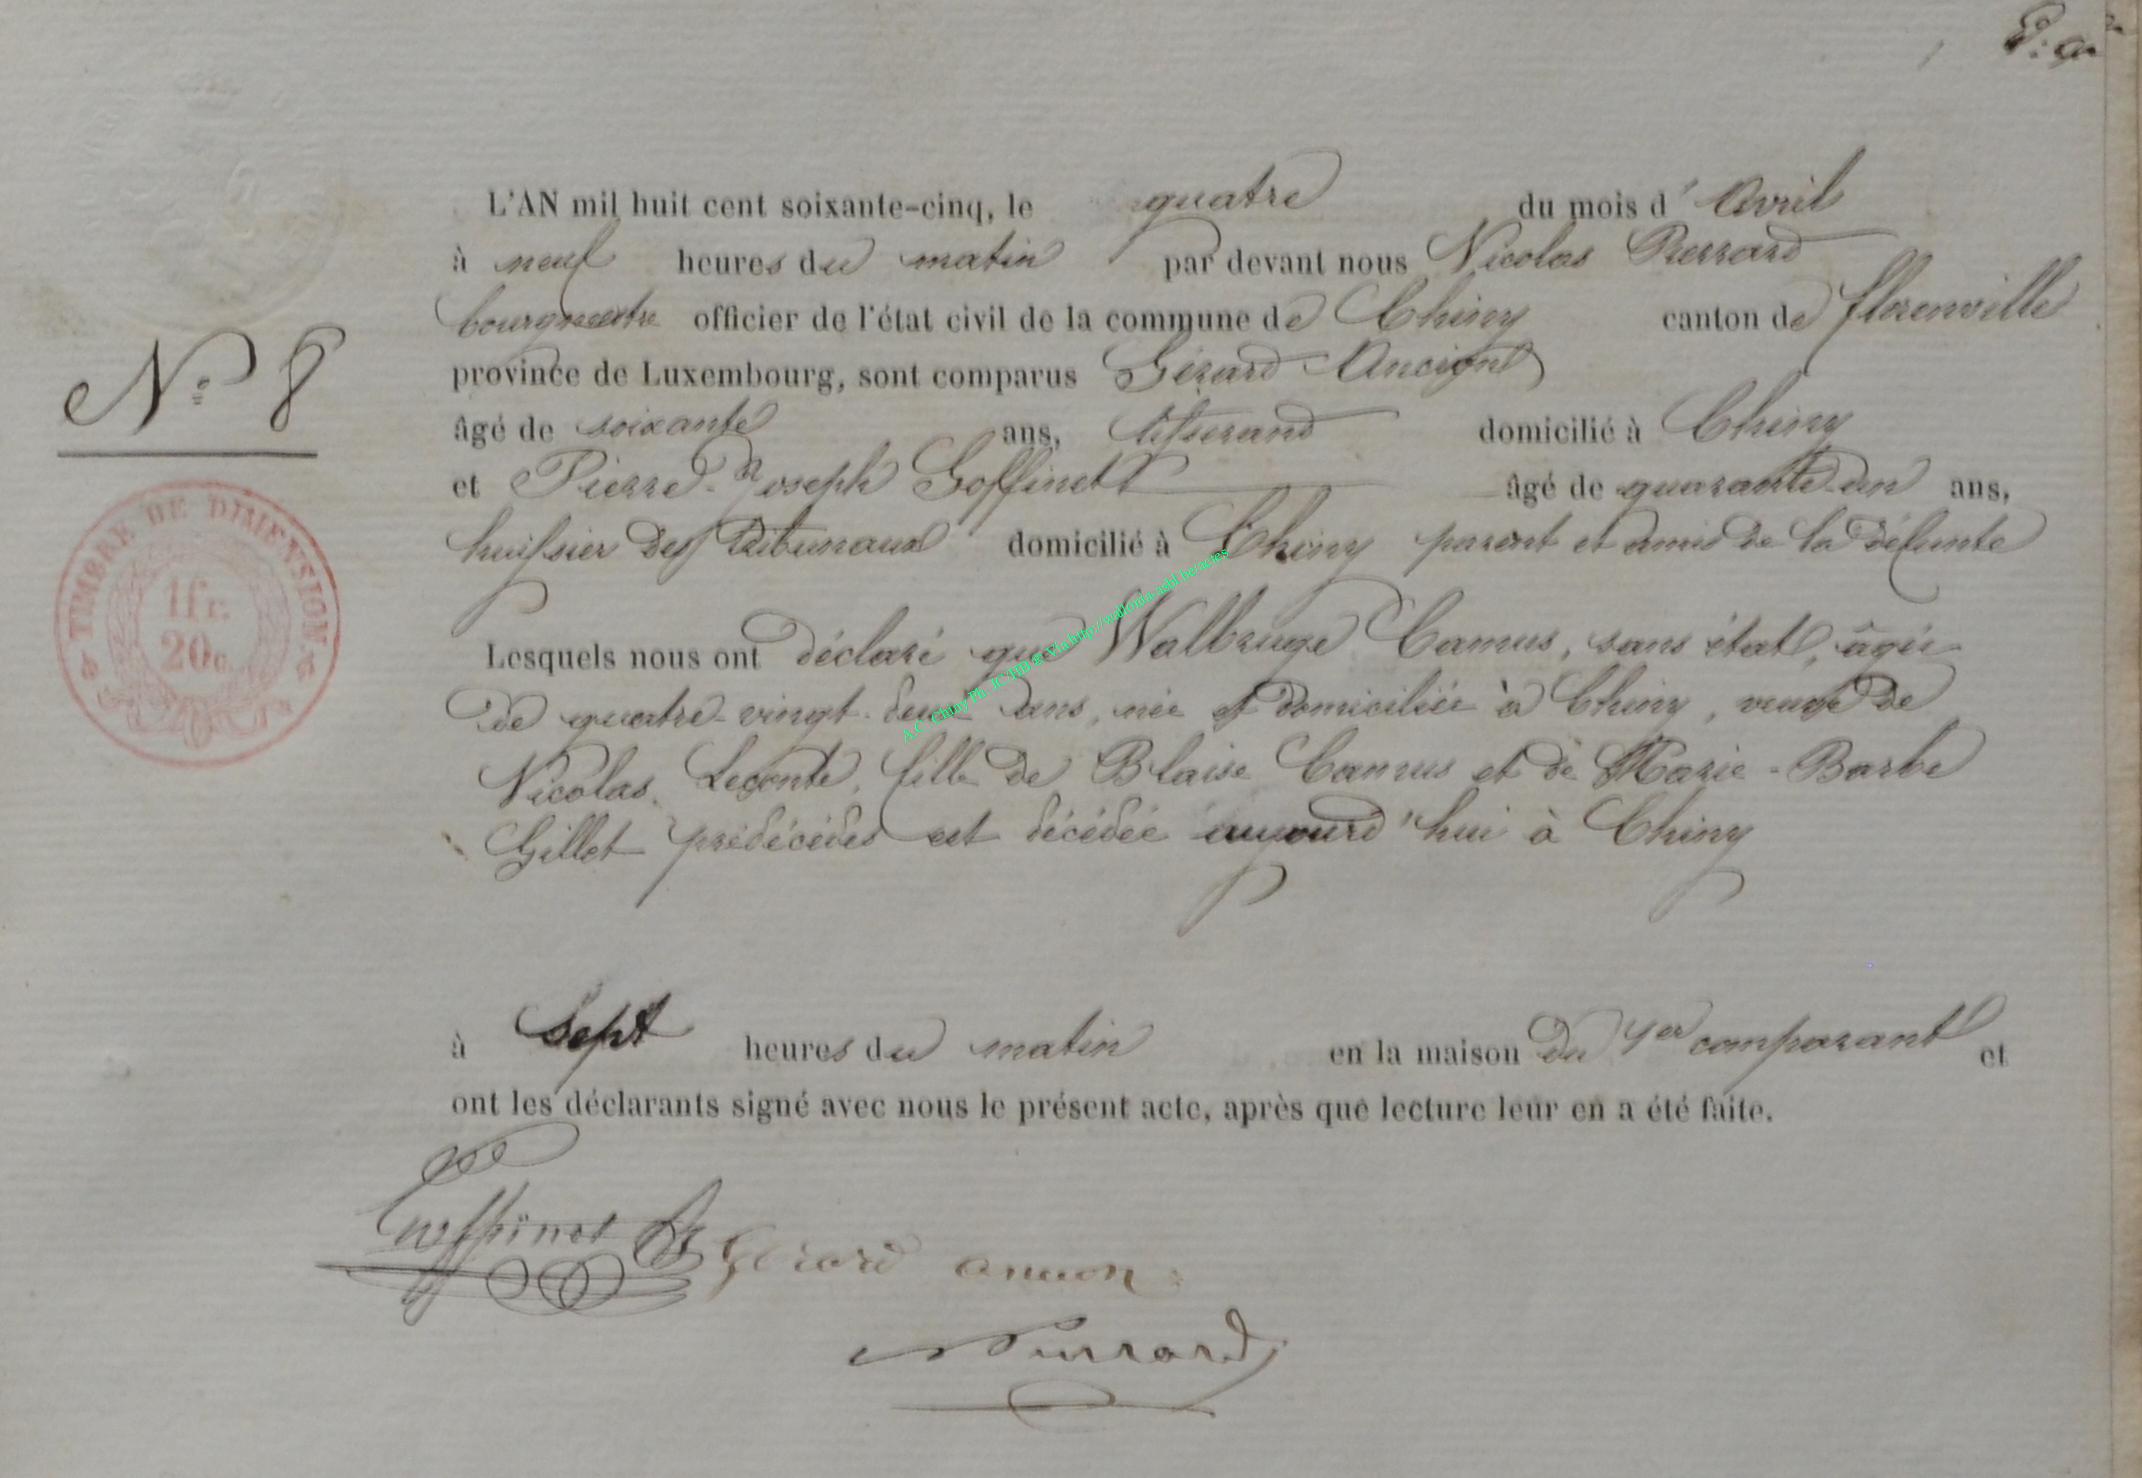 L'AN mil huit cent soixante-cinq, le quatre du mois d'Avril
à neuf heures du matin par devant nous Nicolas Pierrard
bourgmestre officier de l'état civil de la commune de Chiny canton de florenville
province de Luxembourg, sont comparus Gérard Ancion
âgé de soixante ans, tisserand domicilié à Chiny
et Pierre-Joseph Goffinet âgé de quarante-un ans,
huissier des Tribunaux domicilié à Chiny parent et amis de la défunte
Lesquels nous ont déclaré que Walbruge Camus, sans état, âgée
de quatre-vingt-deux ans, née et domiciliée à Chiny, veuve de
Nicolas Leconte, fille de Blaise Camus et de Marie-Barbe
Gillet prédécédés est décédée aujourd'hui à Chiny
à Sept heures du matin en la maison du 1er comparant et
ont les déclarants signé avec nous le présent acte, après que lecture leur en a été faite.
Goffinet
Gerard ancion
NPierrard
N° 8
TIMBRE DE DIMENSION
1fr.
20c.